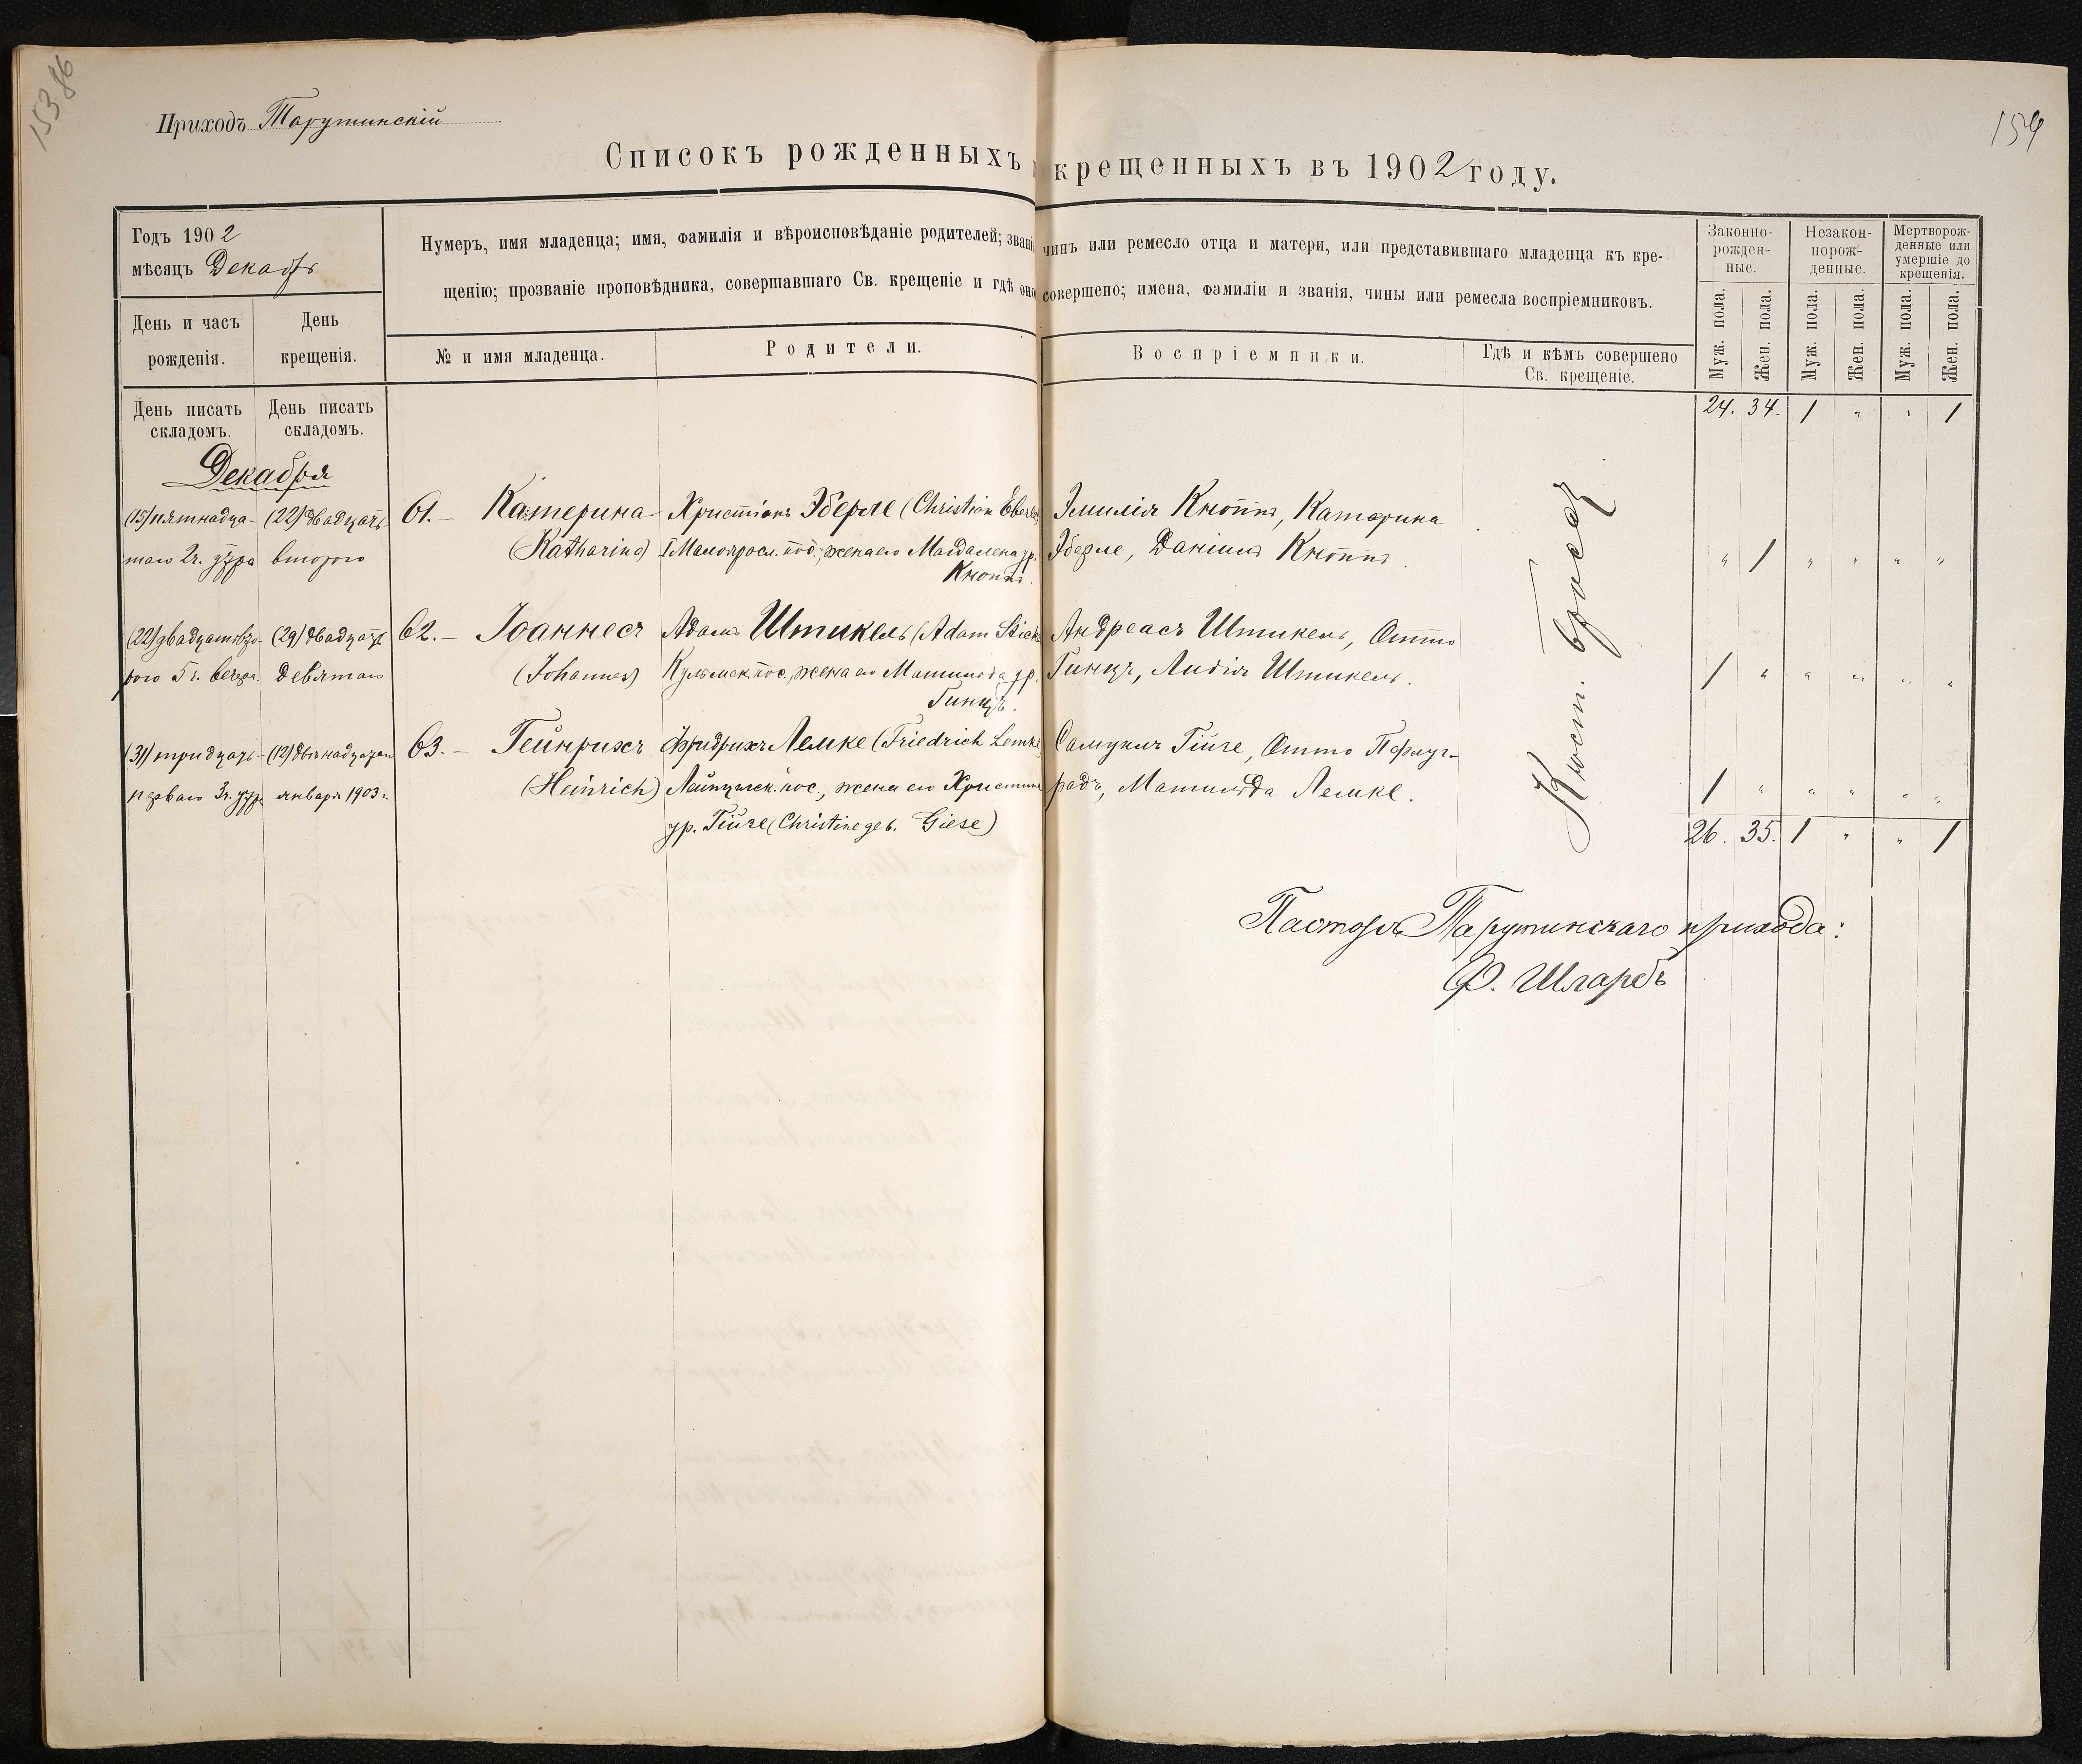 153 об
154
Приходъ Тарутинскій
Списокъ рожденныхъ крещенныхъ въ 1902 году.
Годъ 1902
мѣсяцъ Декабрь
Нумеръ, имя младенца; имя, фамилія и вѣроисповѣданіе родителей; званіе чинъ или ремесло отца и матери, или представившаго младенца къ кре-
щенію; прозваніе проповѣдника, совершавшаго Св. крещеніе и гдѣ оно совершено; имена, фамиліи и званія, чины или ремесла воспріемниковъ.
Законно-
рожден-
ные.
Незакон-
норож-
денные.
Мертворож-
денные или
умершіе до
крещенія.
День и часъ
рожденія.
День
крещенія.
№ и имя младенца.
Родители.
Воспріемники.
Гдѣ и кѣмъ совершено
Св. крещеніе.
Муж. пола.
Жен. пола.
Муж. пола.
Жен. пола.
Муж. пола.
Жен. пола.
День писать
складомъ.
День писать
складомъ.
24. 34. 1 " " 1
Декабря
(15) пятнадца- (22) двадцать 61.- Катерина Христіанъ Эберле (Christian Eberle) Эмилія Кноппъ, Катерина
таго 2ч. утра второго (Katharina) Малояросл. пос., жена его Магдалена ур. Эберле, Даніилъ Кноппъ. " 1 " " " "
Кноппъ.
(22) двадцать вто- (29) двадцать 62.- Іоаннесъ Адамъ Штикель (Adam Stick Андреасъ Штикель, Отто
рого 5ч. вечера. девятаго (Johannes) Кульмск. пос., жена его Матильда ур. Гинцъ, Лидія Штикель. 1 " " " " "
Гинцъ.
(31) тридцать- (12) двѣнадцатаго 63.- Гейнрихъ Фридрихъ Лемке (Friedrich Lemke Самуилъ Гизе, Отто Пфлуг-
перваго 3ч. утра января 1903г. (Heinrich) Лейпцигск. пос., жена его Христина радъ, Матильда Лемке. 1 " " " " "
ур. Гизе (Christine geb. Giese)
Кюст.
26. 35. 1 " " 1
Пасторъ Тарутинскаго прихода:
Ф. Шларбъ